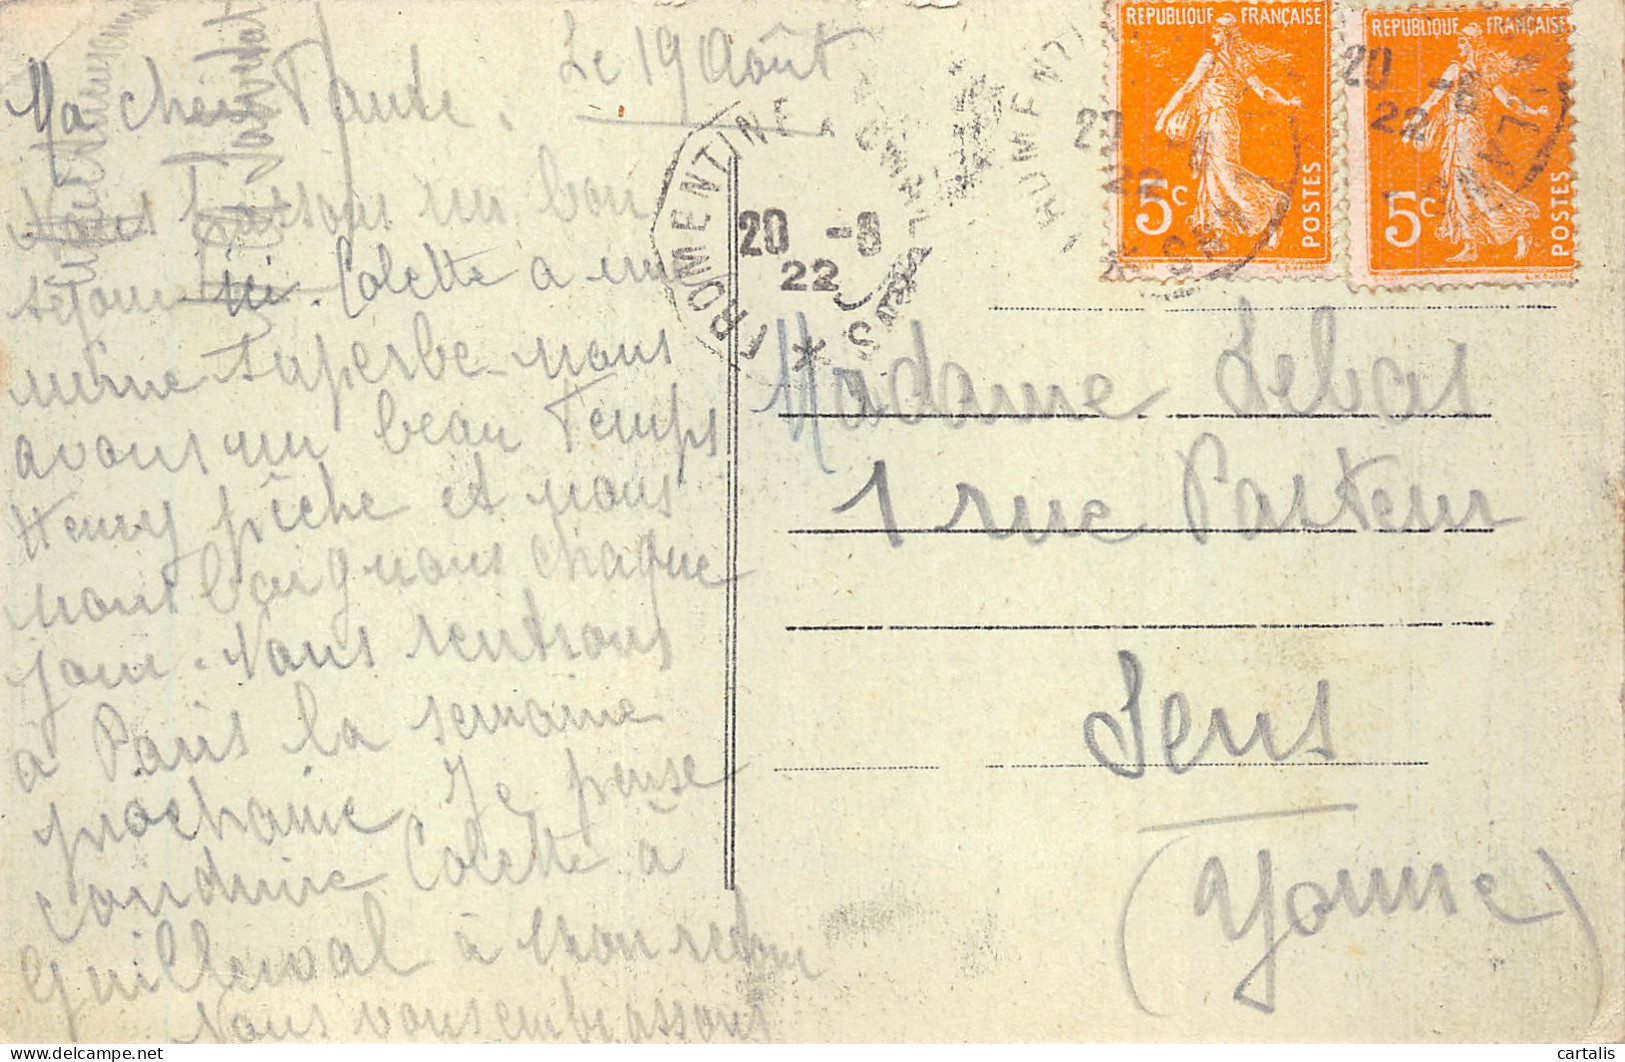 Le 19 Août
Ma chère Tante.
Nous Passons un bon
séjour ici. Colette a une
mine superbe. nous
avons un beau Temps
Henry pêche et nous
nous baignons chaque
jour. Nous rentrons
à Paris la semaine
prochaine Je pense
conduire Colette à
Guillerval à mon retour
Nous vous embrassons
FROMENTINE A CHALLANS
20 -8
22
RÉPUBLIQUE FRANÇAISE
5c
POSTES
RÉPUBLIQUE FRANÇAISE
5c
POSTES
20 -8
22
Madame Lebas
1 rue Pasteur
Sens
(Yonne)
cartalis